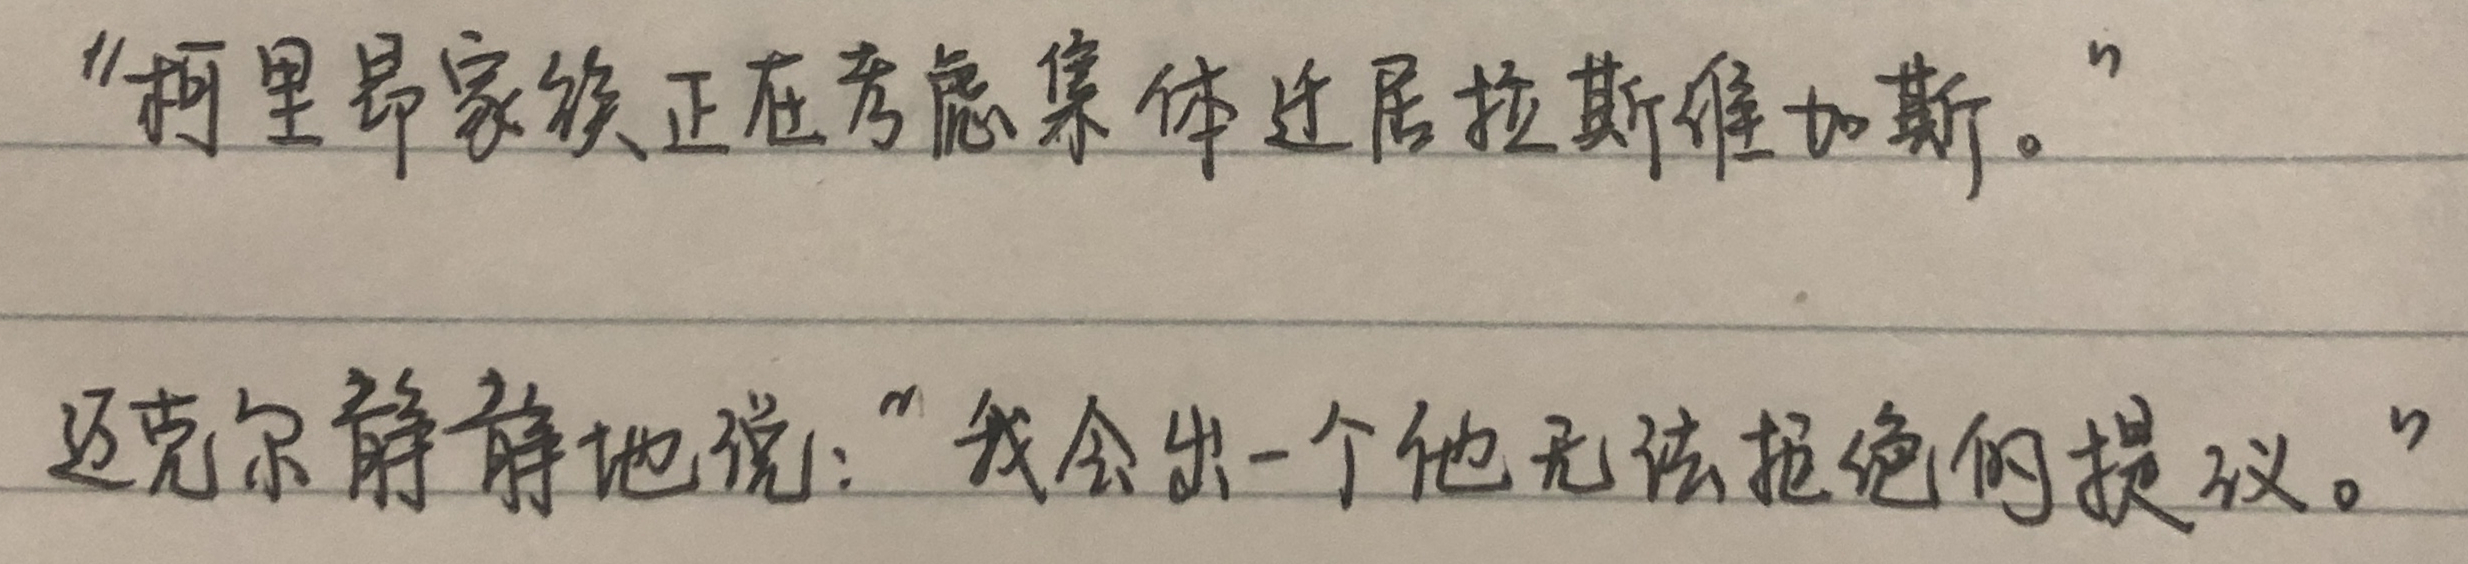 “柯里昂家族正在考虑集体迁居拉斯维加斯。”
迈克尔静静地说：“我会出一个他无法拒绝的提议。”